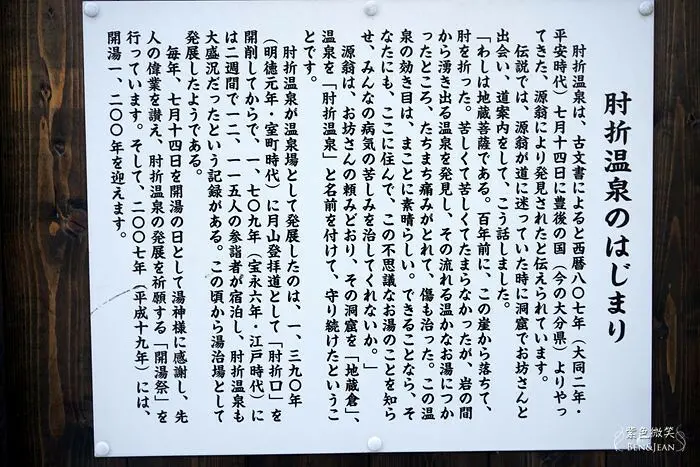 肘折温泉のはじまり
肘折温泉は、古文書によると西暦八〇七年（大同二年・
平安時代）七月十四日に豊後の国（今の大分県）よりやっ
てきた、源翁により発見されたと伝えられています。
伝説では、源翁が道に迷っていた時に洞窟でお坊さんと
出会い、道案内をして、こう話しました。
「わしは地蔵菩薩である。百年前に、この崖から落ちて、
肘を折った。苦しくて苦しくてたまらなかったが、岩の間
から湧き出る温泉を発見し、その流れる温かなお湯につか
ったところ、たちまち痛みがとれて、傷も治った。この温
泉の効き目は、まことに素晴らしい。できることなら、そ
なたにも、ここに住んで、この不思議なお湯のことを知ら
せ、みんなの病気の苦しみを治してくれないか。」
源翁は、お坊さんの頼みどおり、その洞窟を「地蔵倉」、
温泉を「肘折温泉」と名前を付けて、守り続けたというこ
とです。
肘折温泉が温泉場として発展したのは、一、三九〇年
（明徳元年・室町時代）に月山登拝道として「肘折口」を
開削してからで、一、七〇九年（宝永六年・江戸時代）に
は二週間で一二、一一五人の参詣者が宿泊し、肘折温泉も
大盛況だったという記録がある。この頃から湯治場として
発展したようである。
毎年、七月十四日を開湯の日として湯神様に感謝し、先
人の偉業を讃え、肘折温泉の発展を祈願する「開湯祭」を
行っています。そして、二〇〇七年（平成十九年）には、
開湯一、二〇〇年を迎えます。
紫色微笑
BEN&JEAN